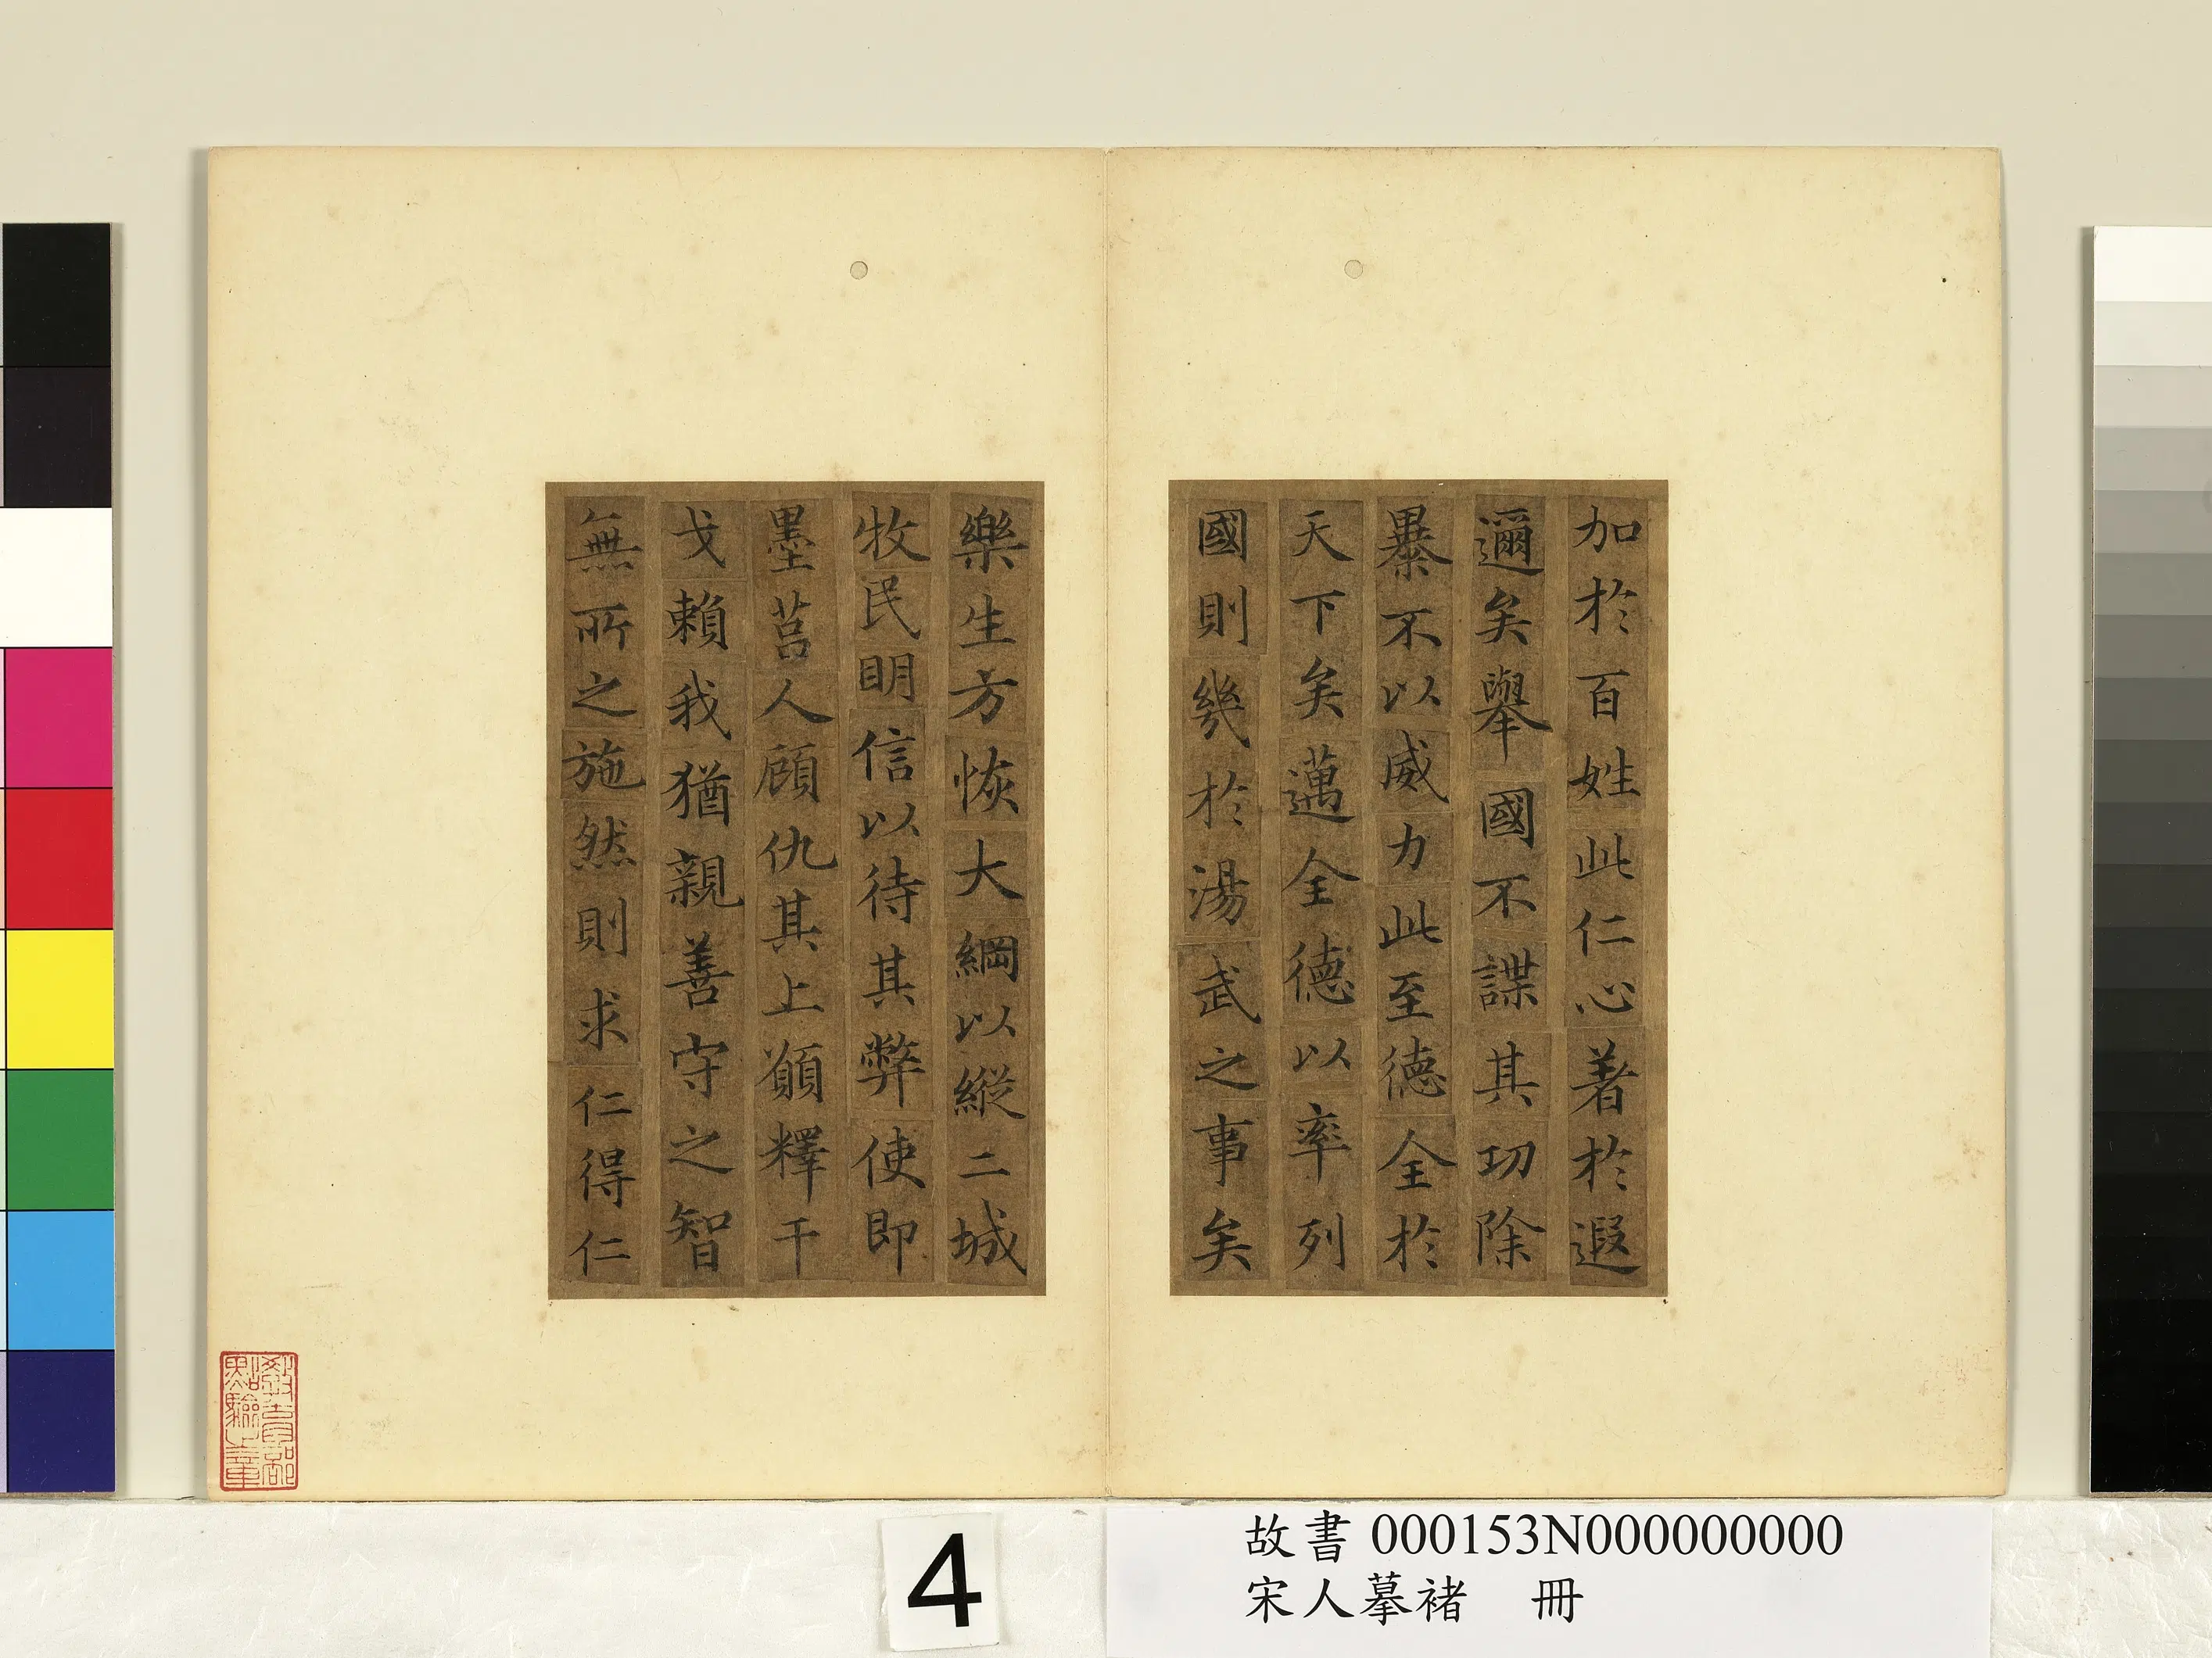 加於百姓此仁心著於遐
邇矣舉國不謀其功除
暴不以威力此至德全於
天下矣邁全德以率列
國則幾於湯武之事矣
樂生方恢大綱以縱二城
牧民明信以待其弊使即
墨莒人顧仇其上願釋干
戈賴我猶親善守之智
無所之施然則求仁得仁
教育部
點驗之章
4
故書000153N000000000
宋人摹褚 冊